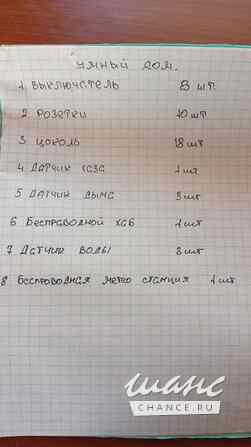 Умный дом.
1 Выключатель 8 шт
2 Розетки 10 шт
3 Цоколь 18 шт
4 Датчик газа 1 шт
5 Датчик дыма 5 шт
6 Бесправодной хаб 1 шт
7 Датчик воды 3 шт
8 Бесправодная метео станция 1 шт
шанс
CHANCE.RU